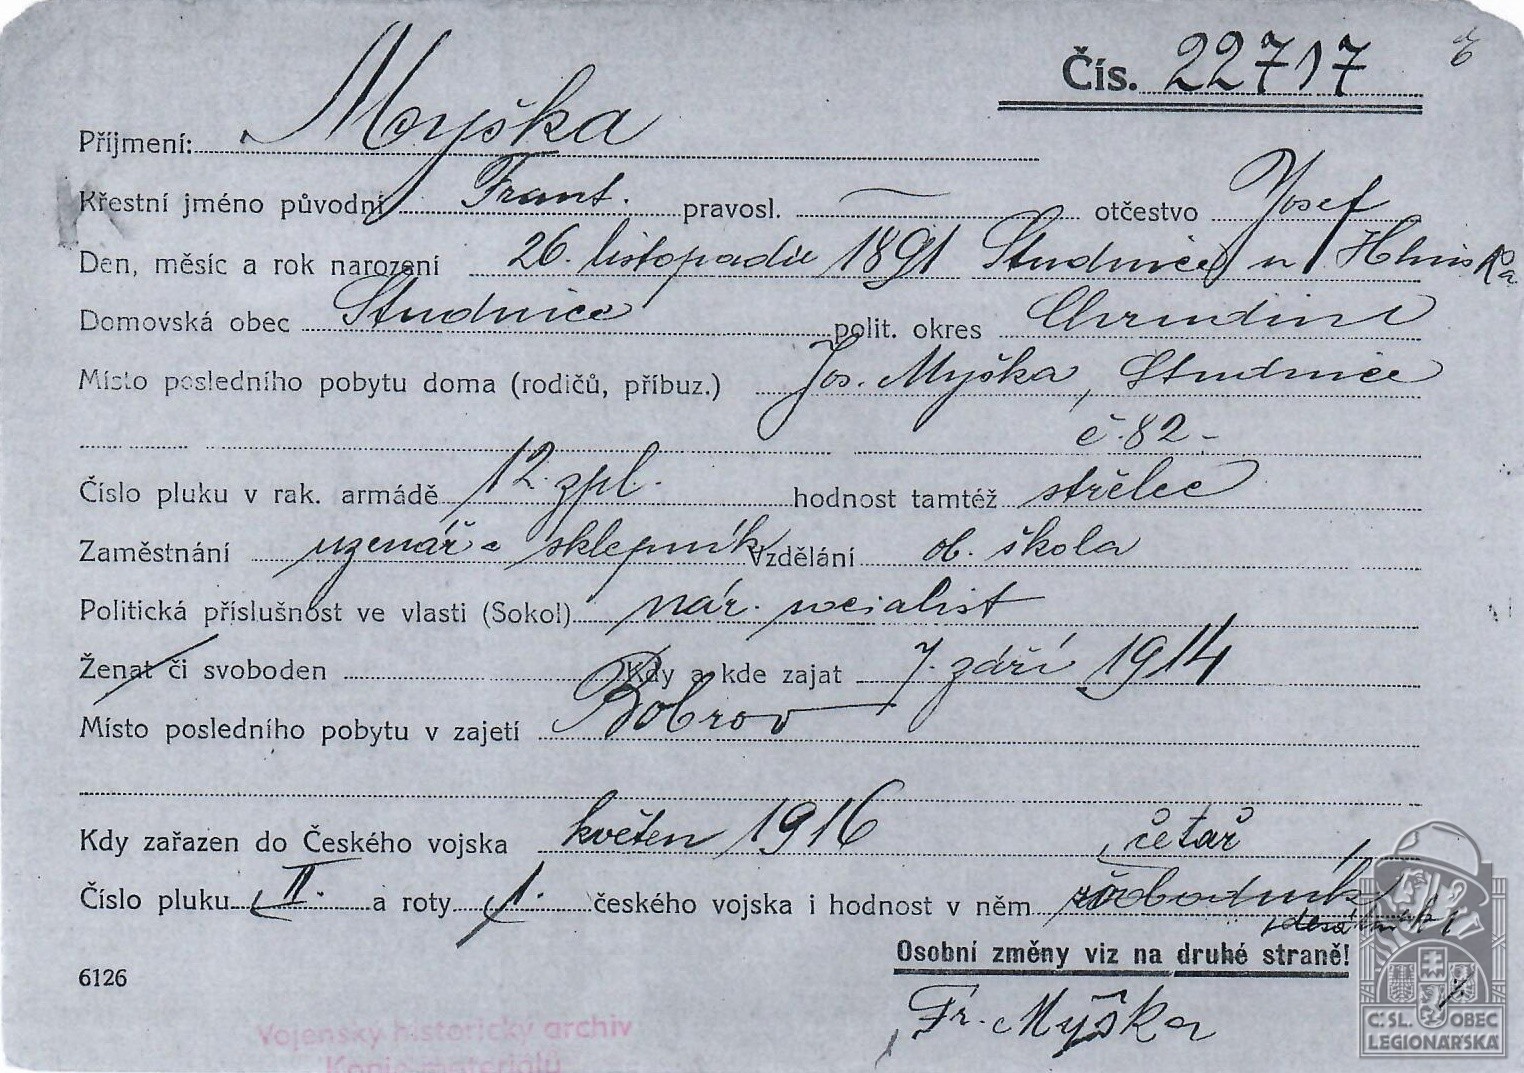 Čís. 22717
Příjmení: Myška
Křestní jméno původní Frant. pravosl. — otčestvo Josef
Den, měsíc a rok narození 26. listopadu 1891 Studnice u Hlinska
Domovská obec Studnice polit. okres Chrudim
Místo posledního pobytu doma (rodičů, příbuz.) Jos. Myška, Studnice
č. 82 -
Číslo pluku v rak. armádě 12. zpl. hodnost tamtéž střelec
Zaměstnání uzenář a sklepník Vzdělání ob. škola
Politická příslušnost ve vlasti (Sokol) nár. socialist
Ženat či svoboden Kdy a kde zajat 7. září 1914
Místo posledního pobytu v zajetí Bobrov
Kdy zařazen do Českého vojska květen 1916 četař
Číslo pluku II. a roty 1. českého vojska i hodnost v něm svobodník
desátník
Osobní změny viz na druhé straně!
6126
Fr. Myška
Vojenský historický archiv
Kopie materiálu
Č.SL. OBEC
LEGIONÁŘSKÁ